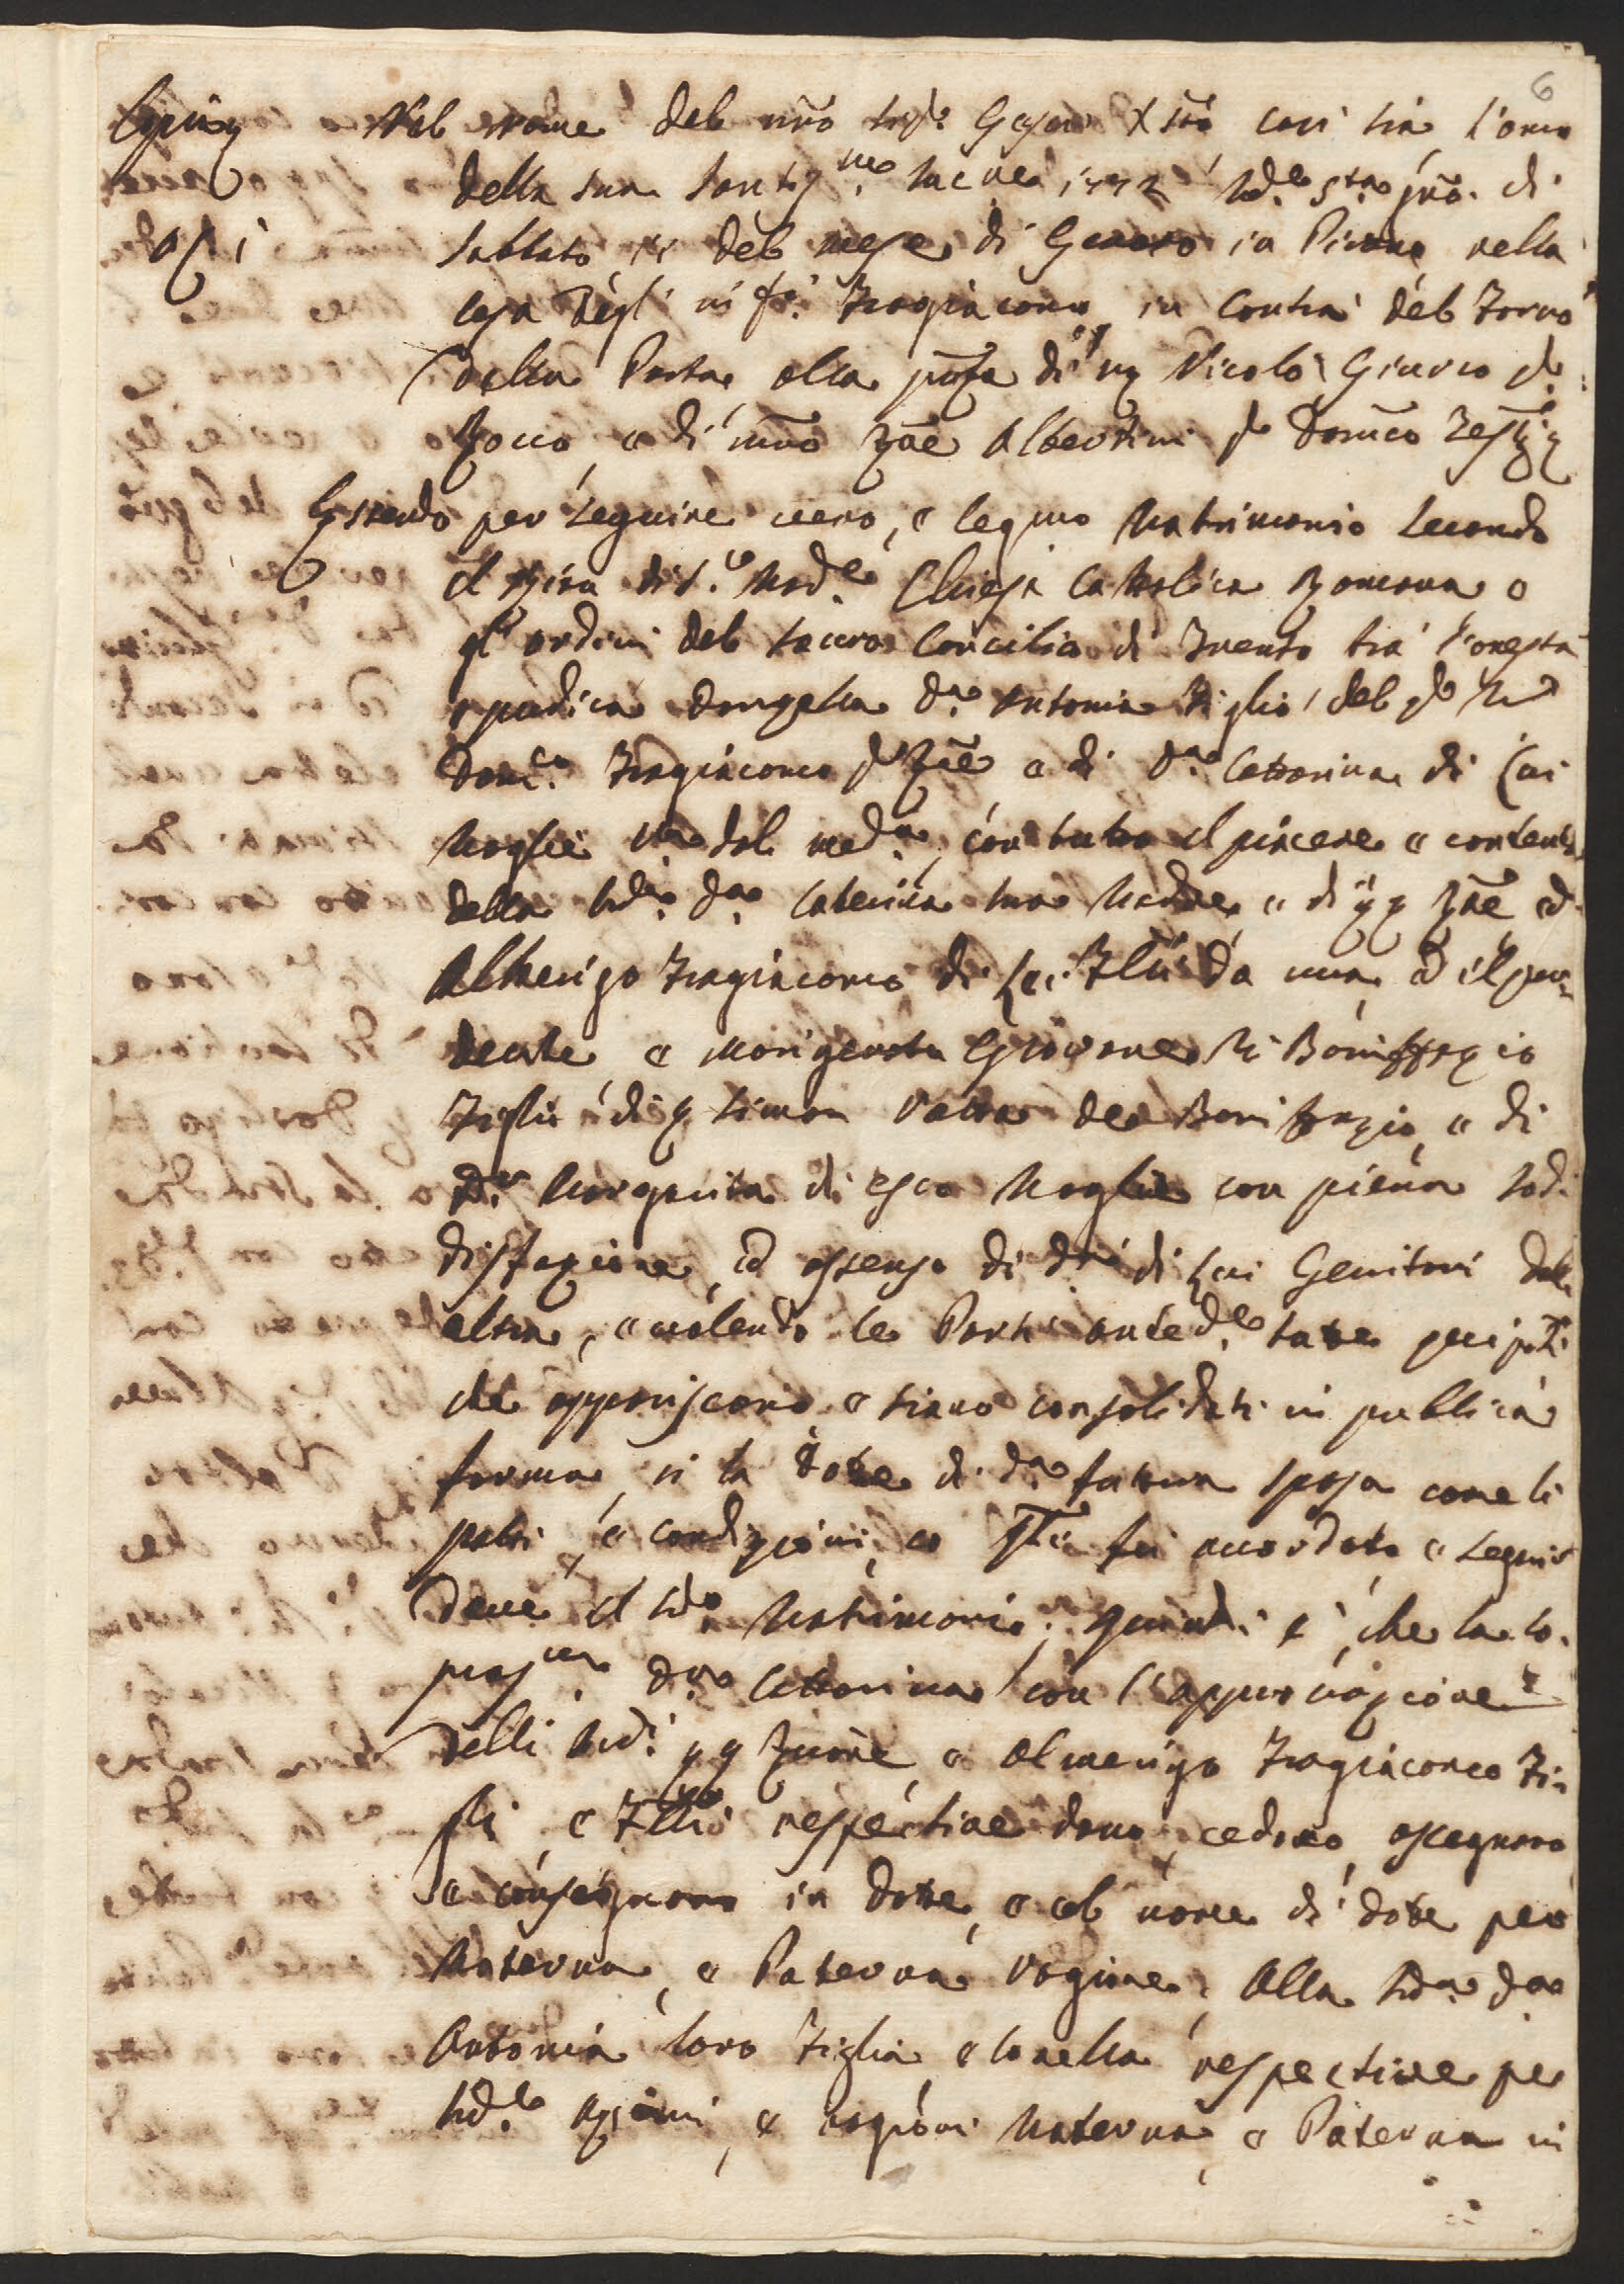 6
Nel nome del nr̃o Sig.r Gesù Xs̃to così sia, l'anno
della sua Santis.ma Nascita 1772 Ind.e 5.ta gñõ. di
Sabbato, xi del mese di Genaro in Pirano nella
casa degl' infr̃i Fragiacomo in Contrà del Forno
della Porta, alla p̃nza di ꝗ Nicolò Giurco q.
Rocco, e di mr̃o Zñe Albertini q. Domẽco Testĩj
Essendo per seguire vero, e leg̃mo Matrimonio secondo
il Rito di S.ta Mad.e Chiesa Cattolica Romana, e
gl' ordini del sacro Concilio di Trento trà l'onesta
e pudica Donzella D.a Antonia Figlia del q.
Dom.co Fragiacomo q. Zñe e di D.a Cattarina di lui
Moglie del med.o, con tutto il piacere e contento
della sud.a D.a Caterina sua Madre, e di ꝗꝗ Zñe ed
Almerigo Fragiacomo di lei Flĩi da una, ed il pru=
dente, e morigerato Giovane Bonifazio
Figlio di ꝗ Simon Vatta de Bonifazio, e di
D.a Margarita di esso Moglie con piena sod=
disfazione, ed assenso di d.i di lui Genitori dal=
altra, e volendo le Parti anted.e
che appariscano, e siano consolidati in publica
forma, sì la Dote di d.a futtura sposa come li
patti, e condizioni, co q̃li fu accordato, e seguir
deve il sud.o Matrimonio; quindi è, che la so=
pras.ta D.a Cattarina con l'approvazione
delli sud.i ꝗꝗ Zuane, e Almerigo Fragiacomo Fi=
gli, e Flli respective dano, cedono, assegnano
e consegnano in Dote, e col nome di dote per
Materna, e Paterna ragione, alla sud.a D.a
Antonia loro Figlia, e sorella respective per
sud.e azioni, e ragioni Materna, e Paterna in